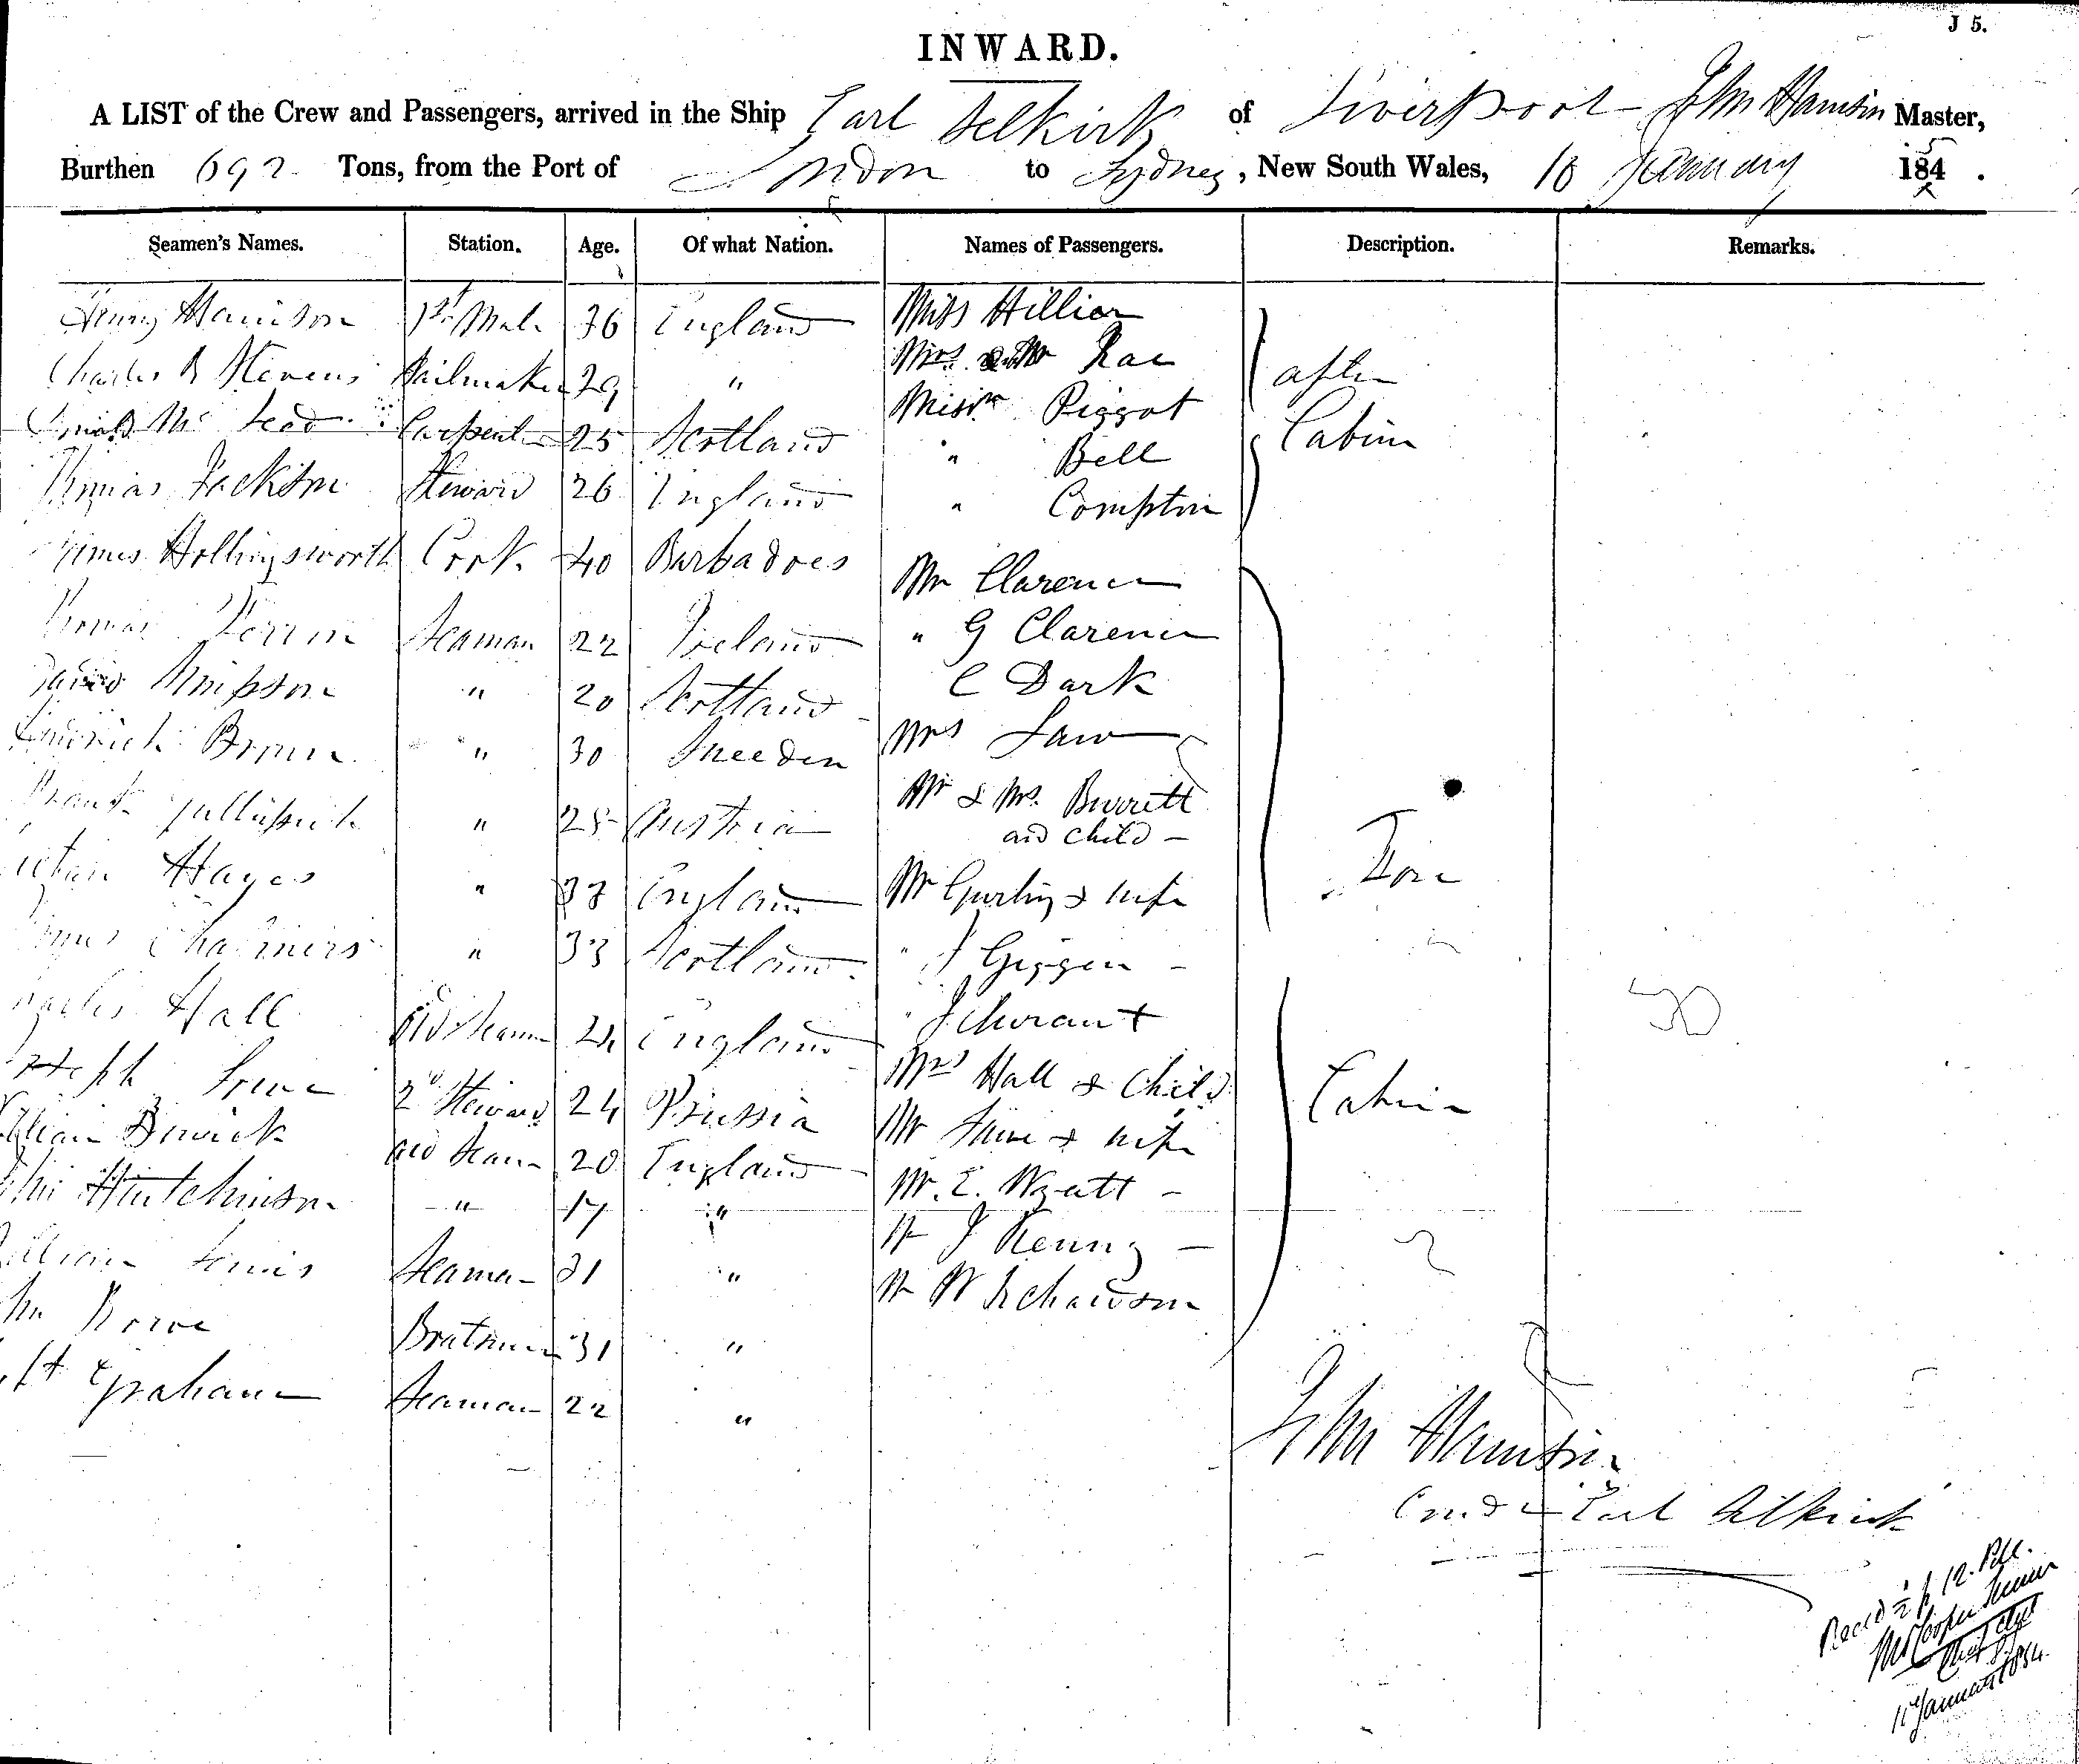 J 5.
INWARD.
A LIST of the Crew and Passengers, arrived in the Ship Earl Selkirk of Liverpool John Harrison Master,
Burthen 692 Tons, from the Port of London to Sydney, New South Wales, 10 January 1845.
Seamen's Names. Station. Age. Of what Nation. Names of Passengers. Description. Remarks.
Henry Harrison 1st Mate 36 England Miss Hillier
Charles R Stevens Sailmaker 29 " Mrs Rae after
Donald Mc Leod Carpenter 25 Scotland Misses Piggot Cabin
" Bell
Thomas Jackson Steward 26 England " Compton
James Hollingsworth Cook 40 Barbadoes Mr Clarence
Thomas Perrin Seaman 22 Ireland " G Clarence
David Simpson " 20 Scotland C Dark
Brown " 30 Sweeden Mrs Law
" 28 Austria Mr & Mrs. Burritt
and Child
Hayes " 33 England Mr Gurling & wife Fore
James Chalmers " 33 Scotland " J Giggen
Charles Hall Seaman 21 England " J Churant
Joseph 2d Steward 24 Prussia Mrs Hall & Child Cabin
William Berwick Seaman 20 England Mr & wife
John Hutchinson " 17 " Mr. E. Wyatt
William Lewis Seaman 31 " Mr J Kenny
John Rowe Boatswain 31 " Mr W Richardson
Graham Seaman 22 "
John Harrison
Earl Selkirk
Recd 12
January 1854